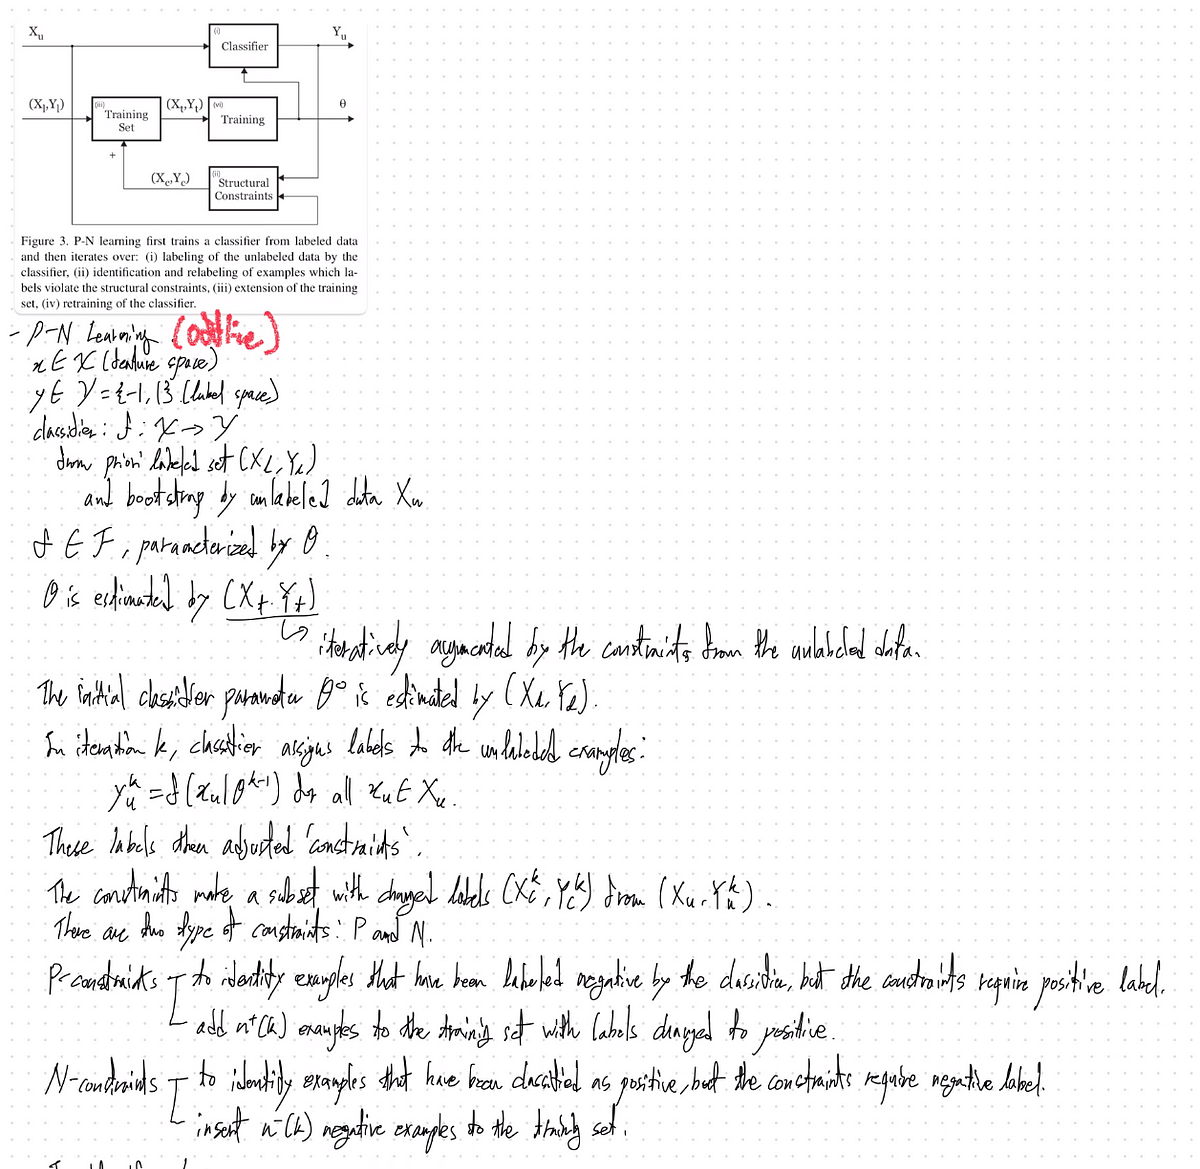 Xu
(i)
Classifier
Yu
(Xl,Yl)
(iii)
Training
Set
(Xt,Yt)
(vi)
Training
θ
+
(Xc,Yc)
(ii)
Structural
Constraints
Figure 3. P-N learning first trains a classifier from labeled data
and then iterates over: (i) labeling of the unlabeled data by the
classifier, (ii) identification and relabeling of examples which la-
bels violate the structural constraints, (iii) extension of the training
set, (iv) retraining of the classifier.
- P-N Learning (offline)
x ∈ X (feature space)
y ∈ Y = {-1, 1} (label space)
classifier : f : X → Y
from priori labeled set (XL, Yl)
and bootstrap by unlabeled data Xu
f ∈ F, parameterized by θ.
θ is estimated by (Xt. Yt)
↳ iteratively augmented by the constraints from the unlabeled data.
The initial classifier parameter θ⁰ is estimated by (Xl, Yl).
In iteration k, classifier assigns labels to the unlabeled examples:
yu^k = f(xu|θ^k-1) for all xu ∈ Xu.
These labels then adjusted 'constraints'.
The constraints make a subset with changed labels (Xc^k, Yc^k) from (Xu, Yu^k).
There are two type of constraints: P and N.
P-constraints to identify examples that have been labeled negative by the classifier, but the constraints require positive label.
add n⁺(k) examples to the training set with labels changed to positive.
N-constraints to identify examples that have been classified as positive, but the constraints require negative label.
insert n⁻(k) negative examples to the training set.